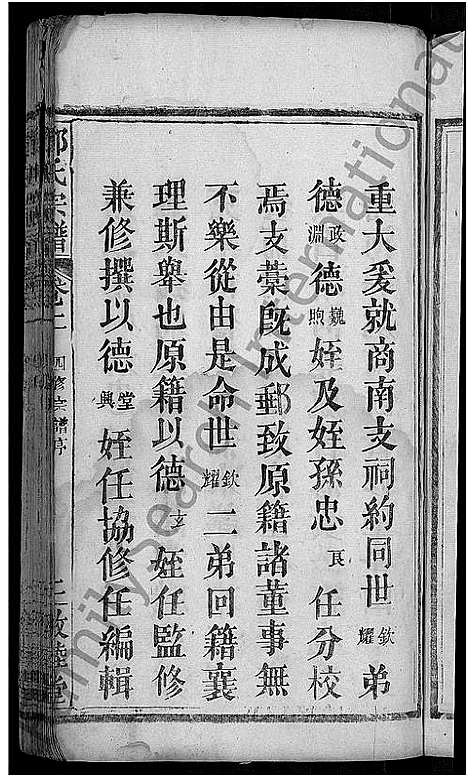 重大爰就商南支祠約同世欽耀弟
德政淵德巍煦姪及姪孫忠良任分校
焉支藁旣成郵致原籍諸董事無
不樂從由是命世欽耀二弟回籍襄
理斯舉也原籍以德玄姪任監修
兼修撰以德堂興姪任協修任編輯
氏宗譜 四修宗譜序 敦睦堂
FamilySearch International